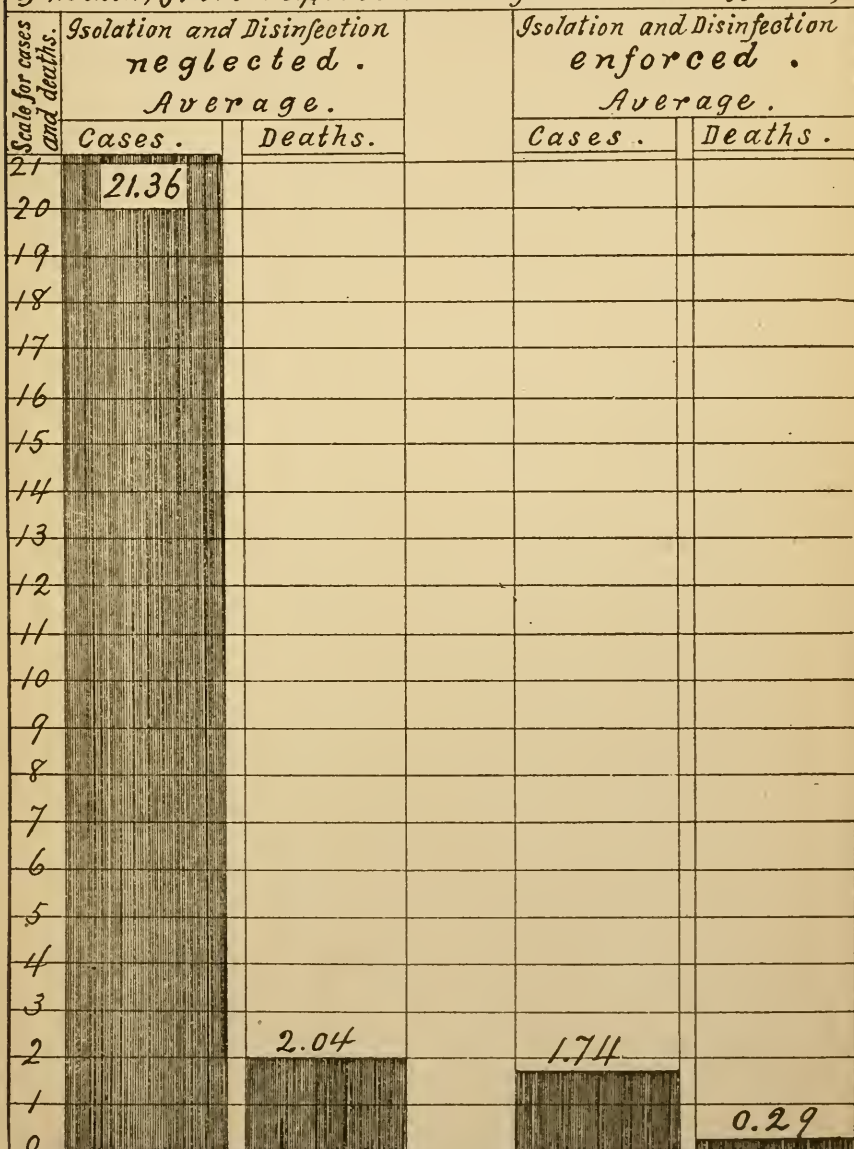 Scale for cases
and deaths.
Isolation and Disinfection
neglected.
Average.
Cases. Deaths.
Isolation and Disinfection
enforced.
Average.
Cases. Deaths.
21
21.36
20
19
18
17
16
15
14
13
12
11
10
9
8
7
6
5
4
3
2.04
2
1.74
1
0.29
0